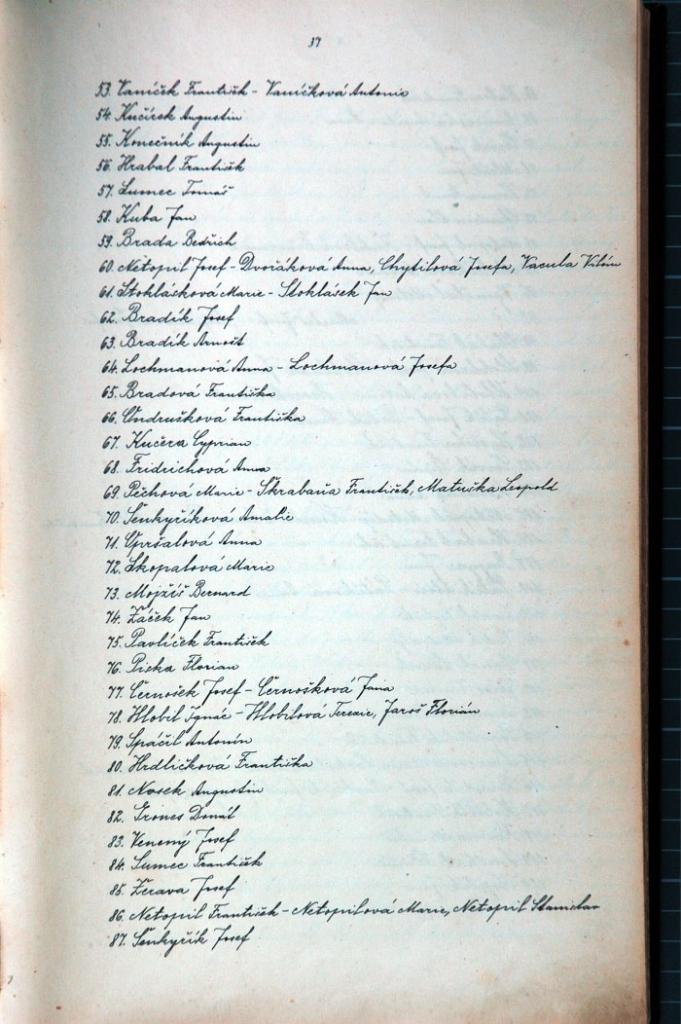 37
53. Vaníček František - Vaníčková Antonie
54. Kučírek Augustin
55. Konečník Augustin
56. Hrabal František
57. Sumec Tomáš
58. Kuba Jan
59. Brada Bedřich
60. Netopil Josef - Dvořáková Anna, Chytilová Josefa, Vacula Vilém
61. Stoklásková Marie - Stoklásek Jan
62. Bradík Josef
63. Bradík Arnošt
64. Lochmanová Anna - Lochmanová Josefa
65. Bradová Františka
66. Ondrušková Františka
67. Kučera Cyprian
68. Fridrichová Anna
69. Pěchová Marie - Škrabana František, Matuška Leopold
70. Šenkyříková Amalie
71. Opršalová Anna
72. Skopalová Marie
73. Mojžíš Bernard
74. Žáček Jan
75. Pavlíček František
76. Florian
77. Černošek Josef - Černošková Jana
78. Hlobil Ignác - Hlobilová Terezie, Jaroš Florián
79. Spáčil Antonín
80. Hrdličková Františka
81. Nosek Augustin
82. Donát
83. Josef
84. Sumec František
85. Žerava Josef
86. Netopil František - Netopilová Marie, Netopil Stanislav
87. Šenkyřík Josef